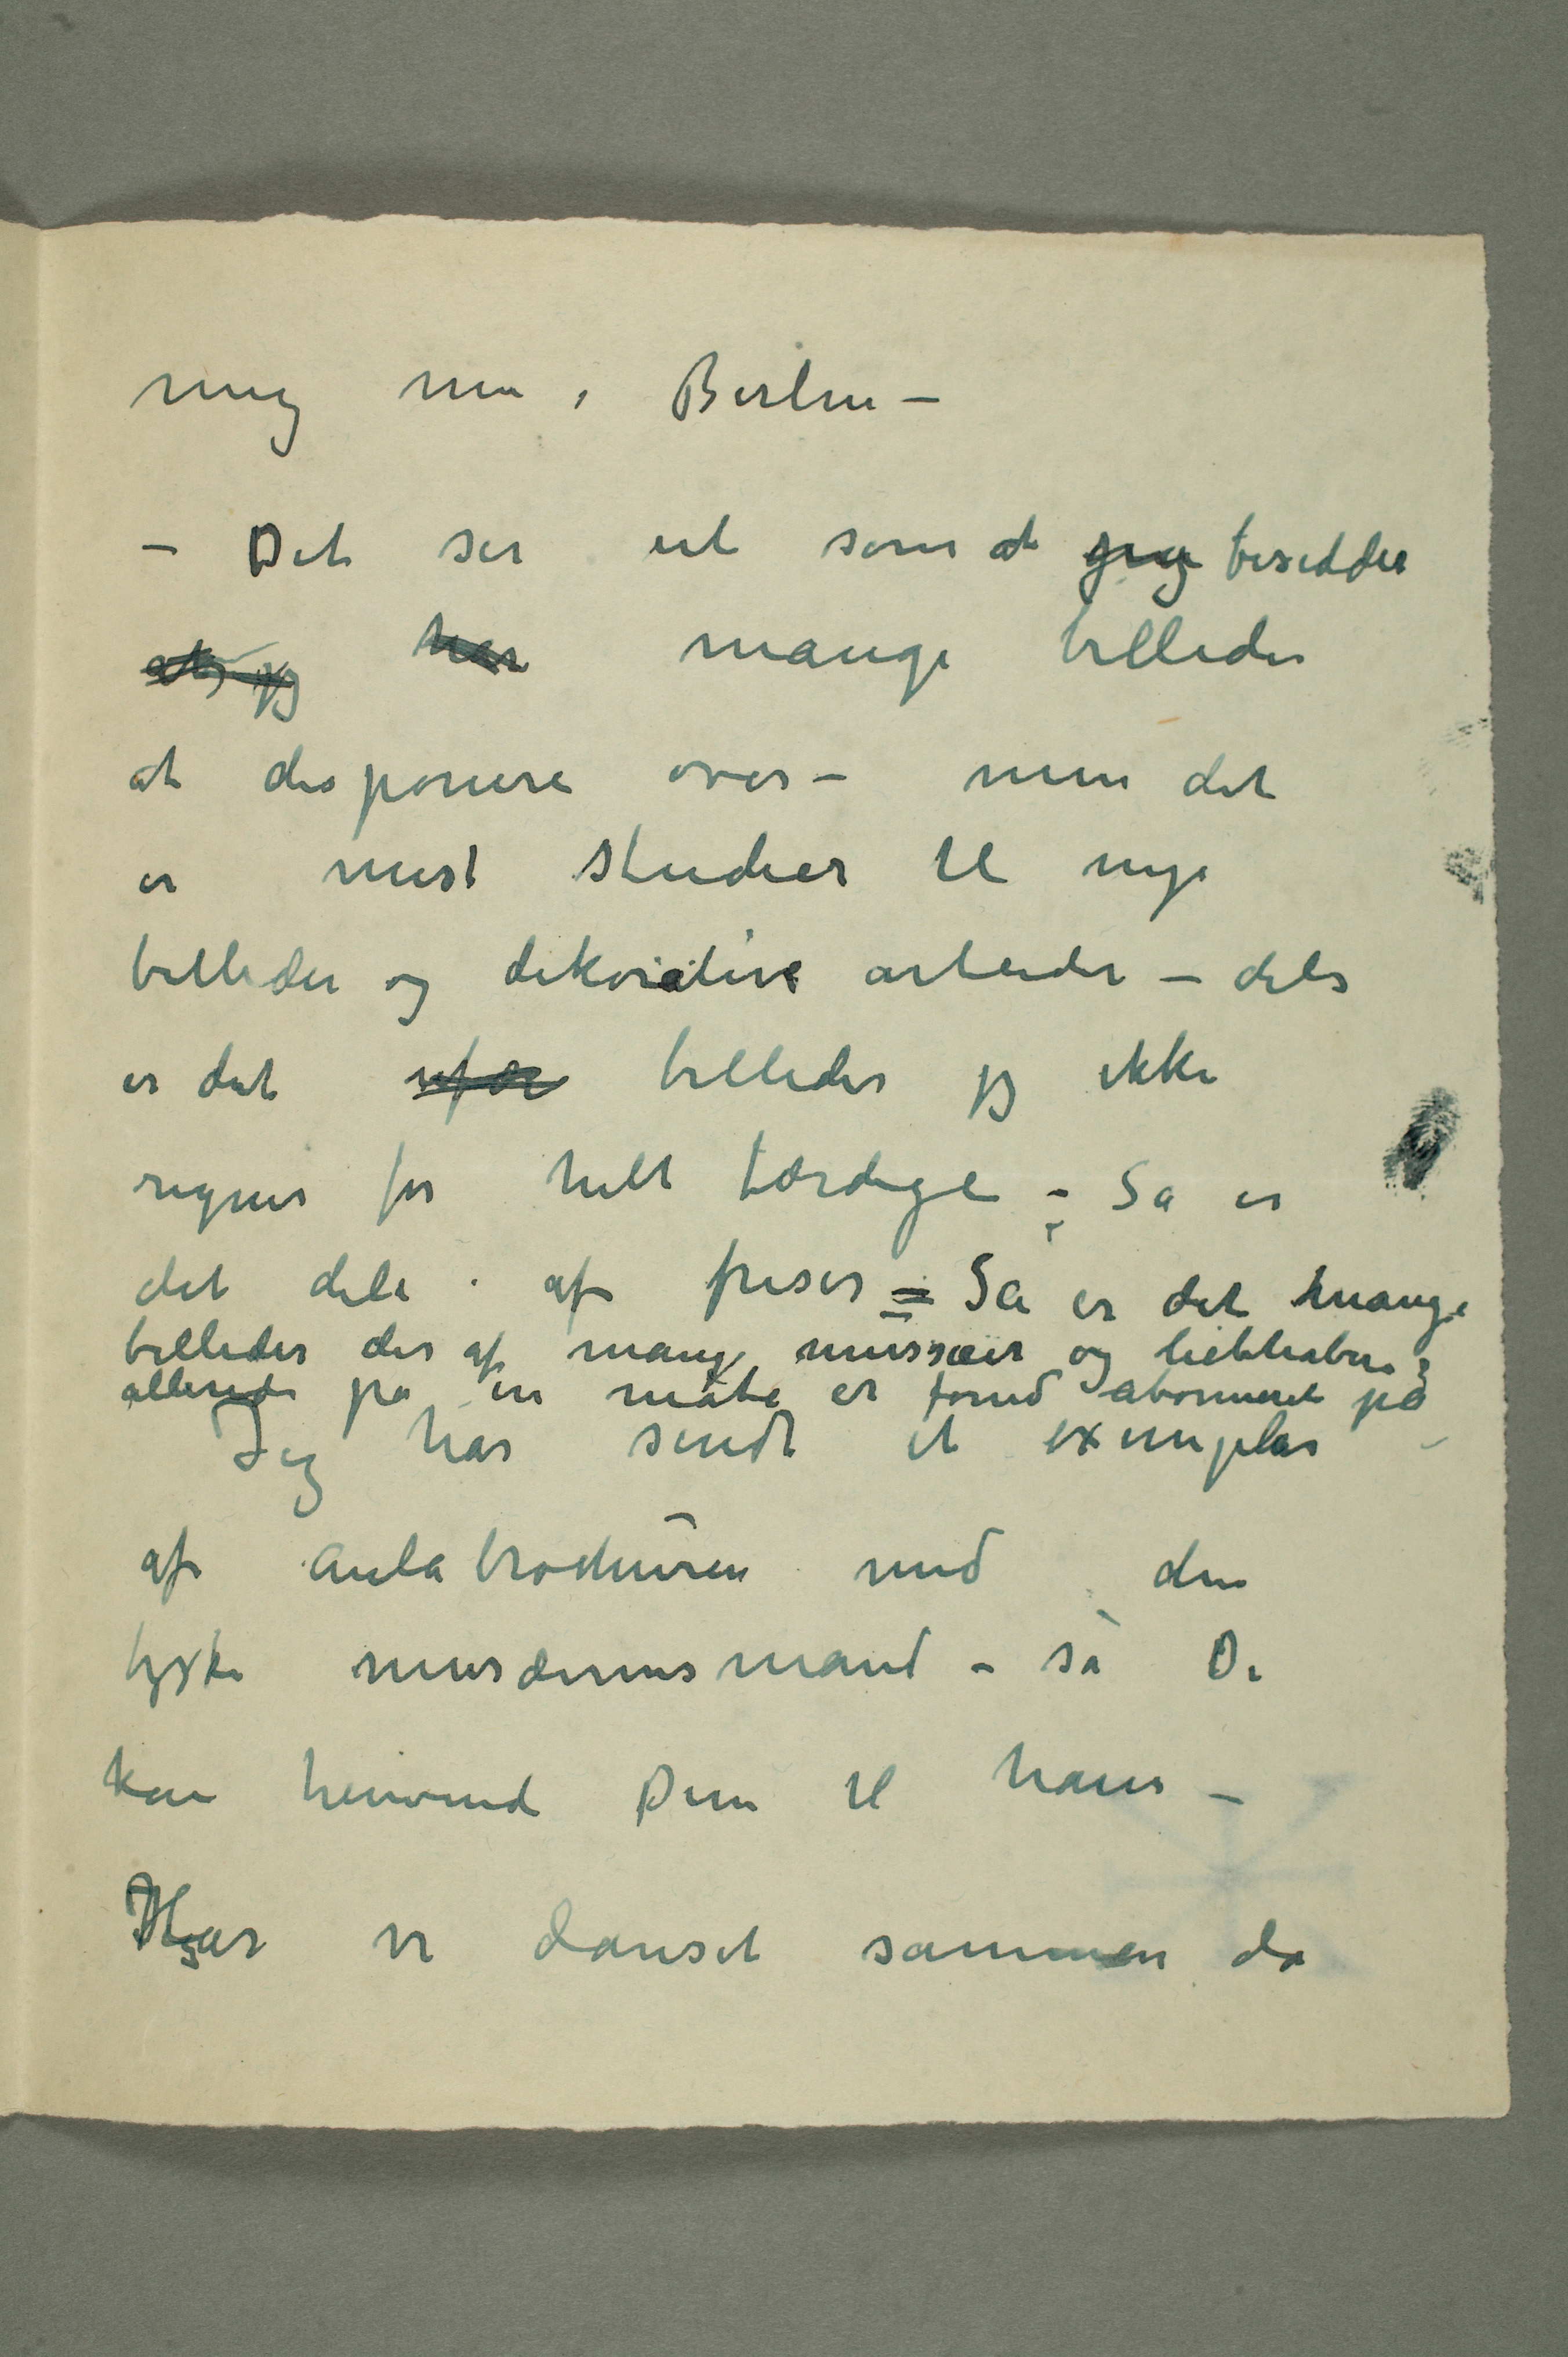 mig nu i Berlin –
– Det ser ut som at jeg besidder
at jeg har mange billeder
at disponere over – men det
er mest studier til nye
billeder og dekorative arbeider – dels
er det billeder jeg ikke
regner for helt færdige – Så er
det dele af friser = Så er det mange
billeder der af mange musæer og liebhabere
allerede på en måte er forud abonneret på
Jeg har sendt et exemplar –
af Aulabrochuren med den
tyske musæumsmand – så De
kan henvende Dem til ham –
Har vi danset sammen da